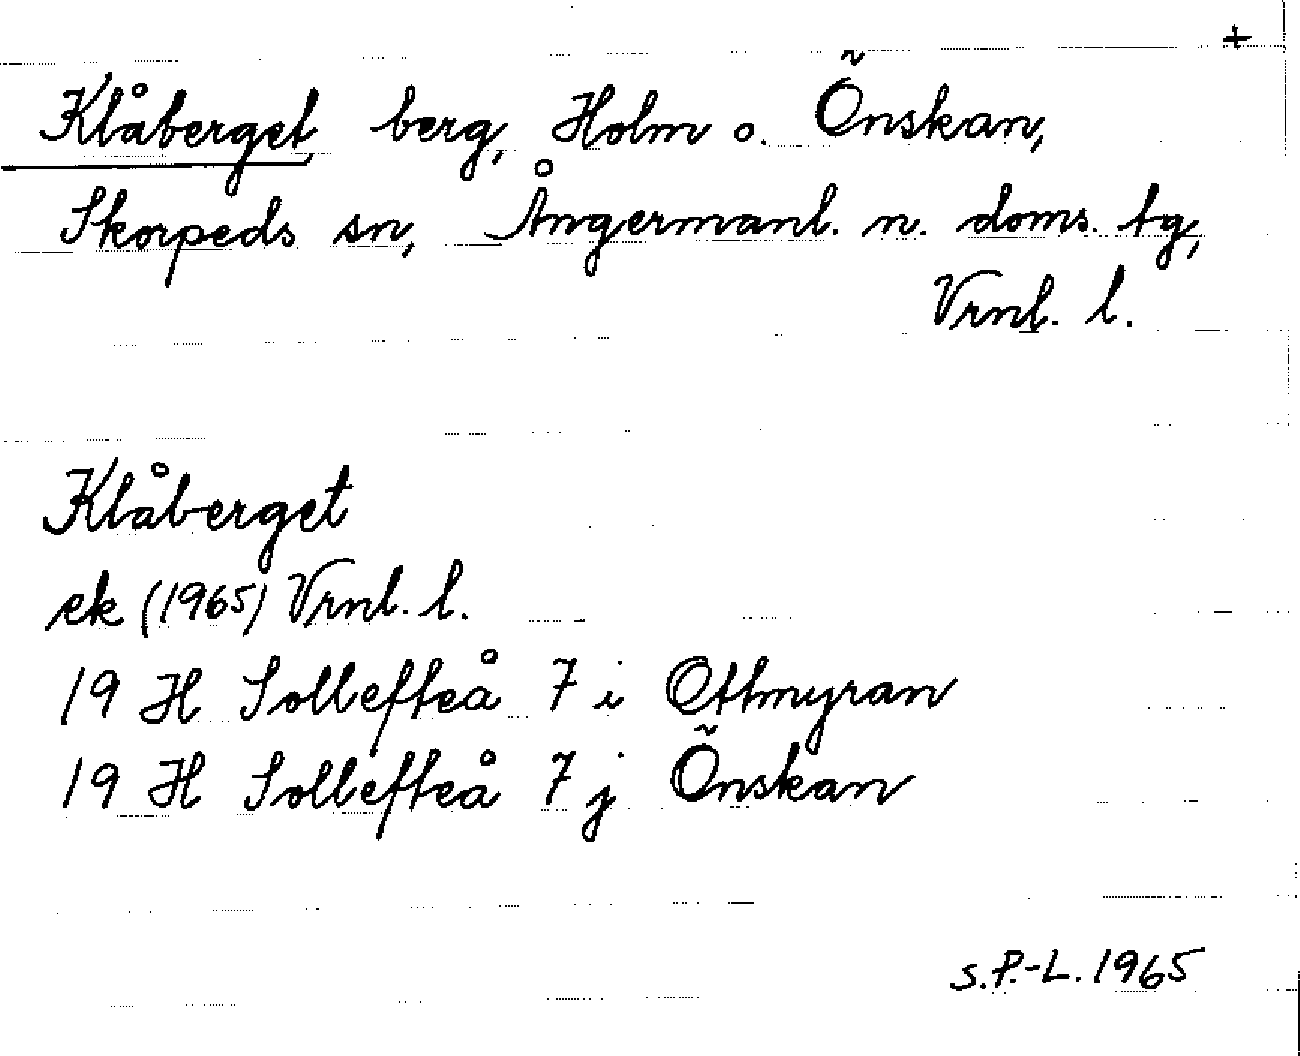 +
Klåberget, berg, Holm o. Önskan,
Skorpeds sn, Ångermanl. n. doms. tg,
Vrnl. l.
Klåberget
ek (1965) Vrnl. l.
19 H Sollefteå 7 i Ottmyran
19 H Sollefteå 7 j Önskan
S.P.-L. 1965